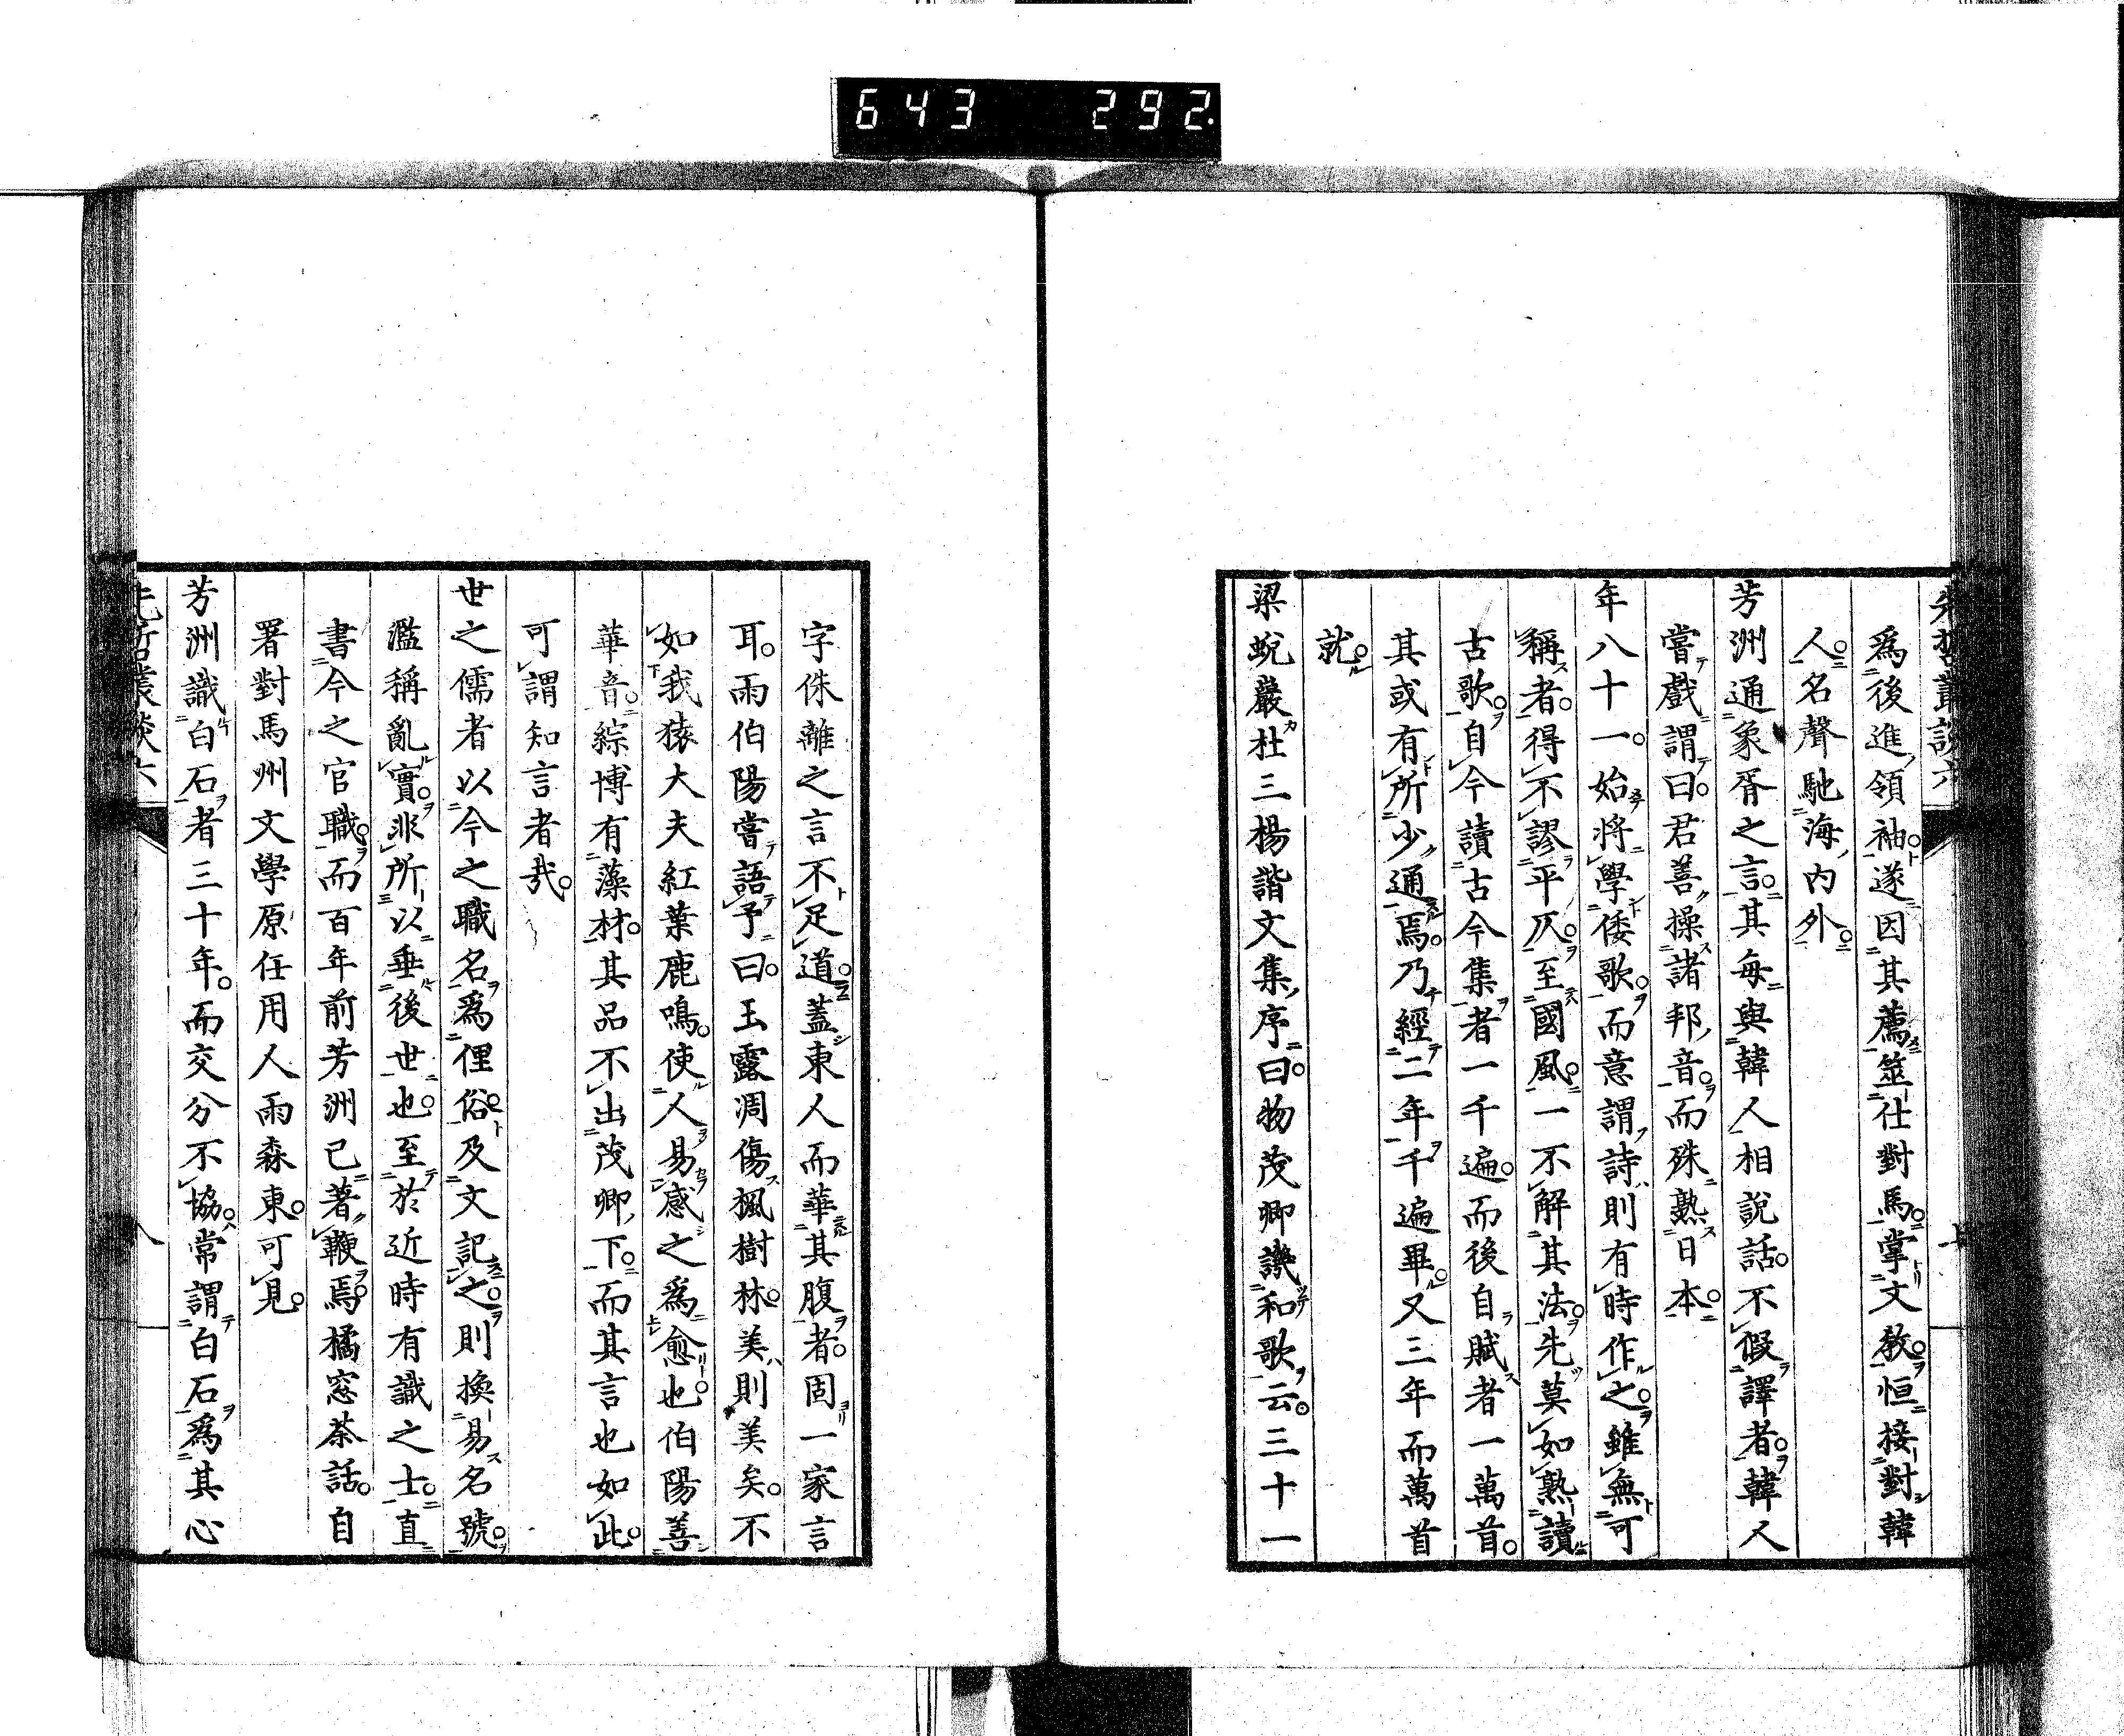 643 292.
先哲叢談六
爲後進領袖遂因其薦筮仕對馬掌文教恒接對韓
人名聲馳海内外
芳洲通象胥之言其毎與韓人相說話不假譯者韓人
嘗戲謂曰君善操諸邦音而殊熟日本
年八十一始將學倭歌而意謂詩則有時作之雖無可
稱者得不謬平仄至國風一不解其法先莫如熟讀
古歌自今讀古今集者一千遍而後自賦者一萬首
其或有所少通焉乃經二年千遍畢又三年而萬首
就
梁蛻巖杜三楊諧文集序曰物茂卿譏和歌云三十一
字侏離之言不足道蓋東人而華其腹者固一家言
耳雨伯陽嘗語予曰玉露凋傷楓樹林美則美矣不
如我猿大夫紅葉鹿鳴使人易感之爲愈也伯陽善
華音綜博有藻材其品不出茂卿下而其言也如此
可謂知言者哉
世之儒者以今之職名爲俚俗及文記之則換易名號
濫稱亂實非所以垂後世也至於近時有識之士直
書今之官職而百年前芳洲已著鞭焉橘窓茶話自
署對馬州文學原任用人雨森東可見
芳洲識白石者三十年而交分不協常謂白石爲其心
先哲叢談六